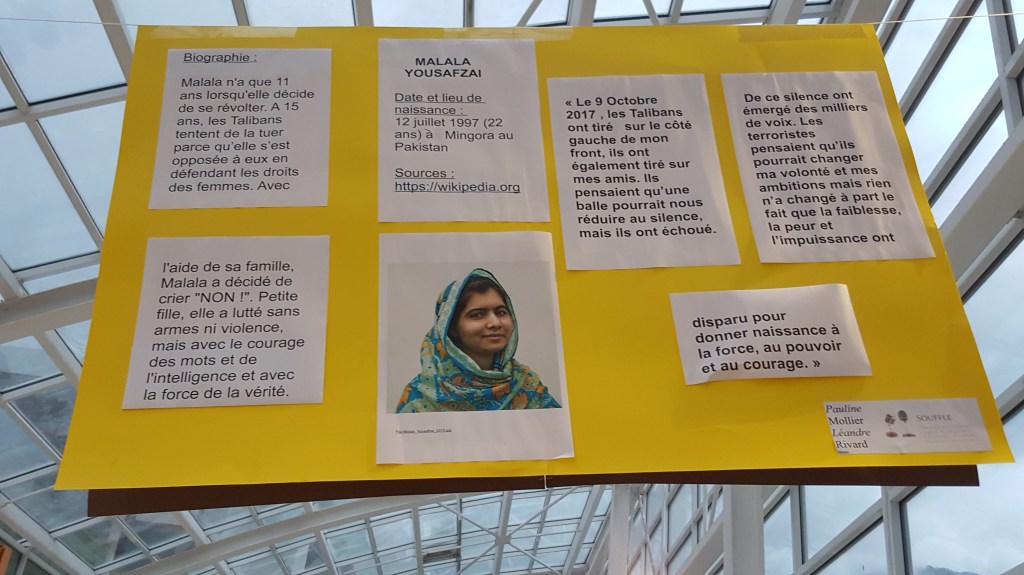 Biographie :
Malala n'a que 11
ans lorsqu'elle décide
de se révolter. A 15
ans, les Talibans
tentent de la tuer
parce qu'elle s'est
opposée à eux en
défendant les droits
des femmes. Avec
l'aide de sa famille,
Malala a décidé de
crier "NON !". Petite
fille, elle a lutté sans
armes ni violence,
mais avec le courage
des mots et de
l'intelligence et avec
la force de la vérité.
MALALA
YOUSAFZAI
Date et lieu de
naissance :
12 juillet 1997 (22
ans) à Mingora au
Pakistan
Sources :
https://wikipedia.org
« Le 9 Octobre
2017 , les Talibans
ont tiré sur le côté
gauche de mon
front, ils ont
également tiré sur
mes amis. Ils
pensaient qu'une
balle pourrait nous
réduire au silence,
mais ils ont échoué.
De ce silence ont
émergé des milliers
de voix. Les
terroristes
pensaient qu'ils
pourrait changer
ma volonté et mes
ambitions mais rien
n'a changé à part le
fait que la faiblesse,
la peur et
l'impuissance ont
disparu pour
donner naissance à
la force, au pouvoir
et au courage. »
Pauline
Mollier
Léandre
Rivard
SOUFFLE